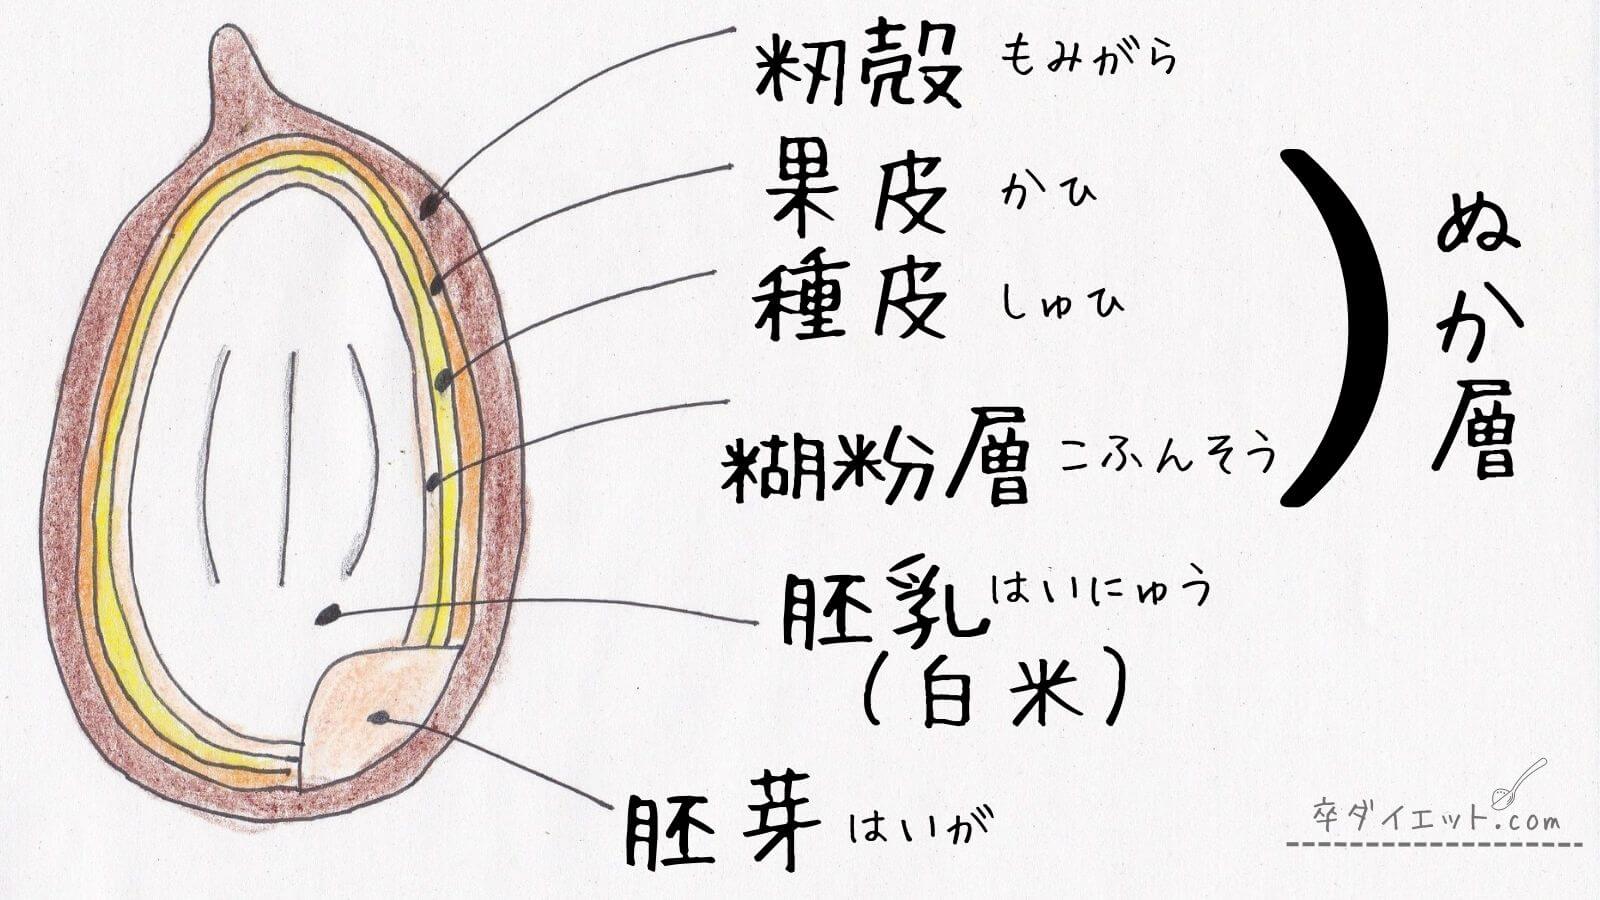 籾殻 もみがら
果皮 かひ
種皮 しゅひ
糊粉層 こふんそう
ぬか層
胚乳 はいにゅう
(白米)
胚芽 はいが
卒ダイエット.com